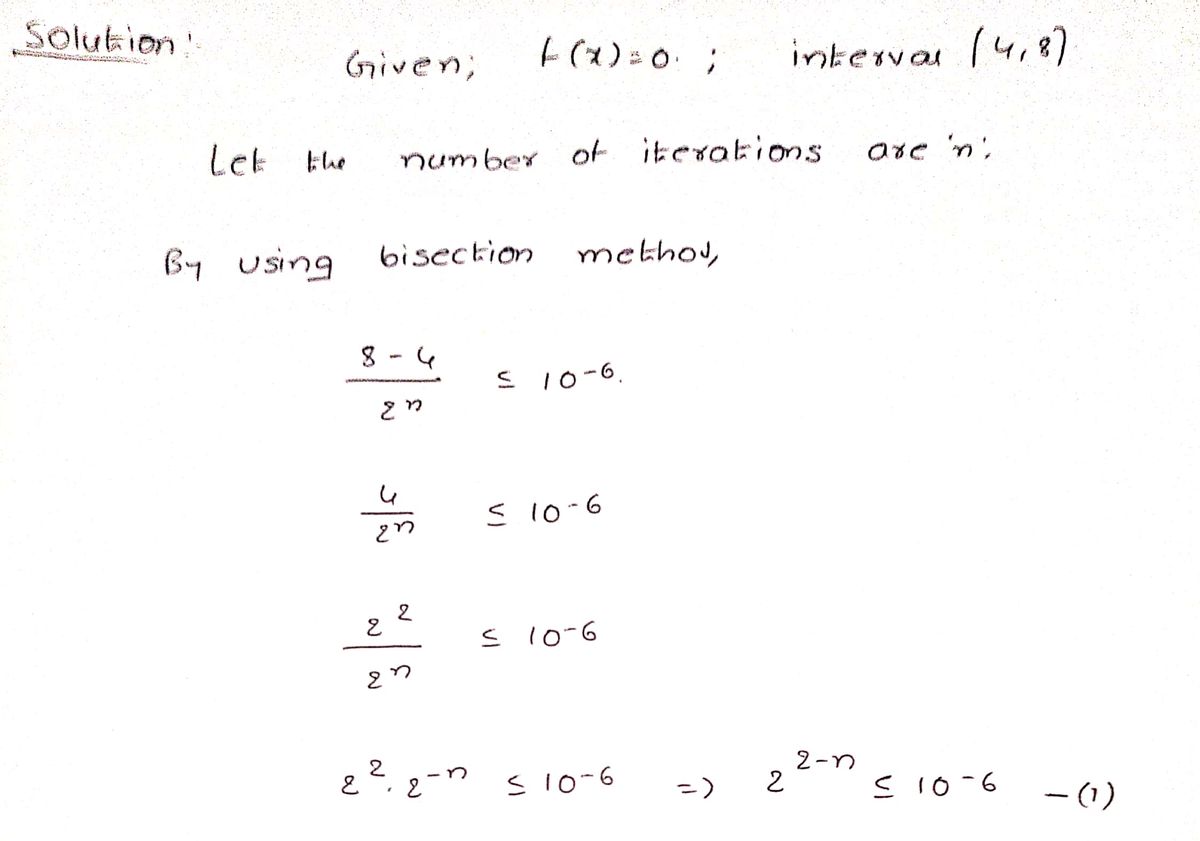 Solution:
Given; f(x)=0. ; interval (4,8)
Let the number of iterations are 'n'.
By using bisection method,
8-4 / 2^n ≤ 10^-6.
4 / 2^n ≤ 10^-6
2^2 / 2^n ≤ 10^-6
2^2 . 2^-n ≤ 10^-6 => 2^2-n ≤ 10^-6 - (1)